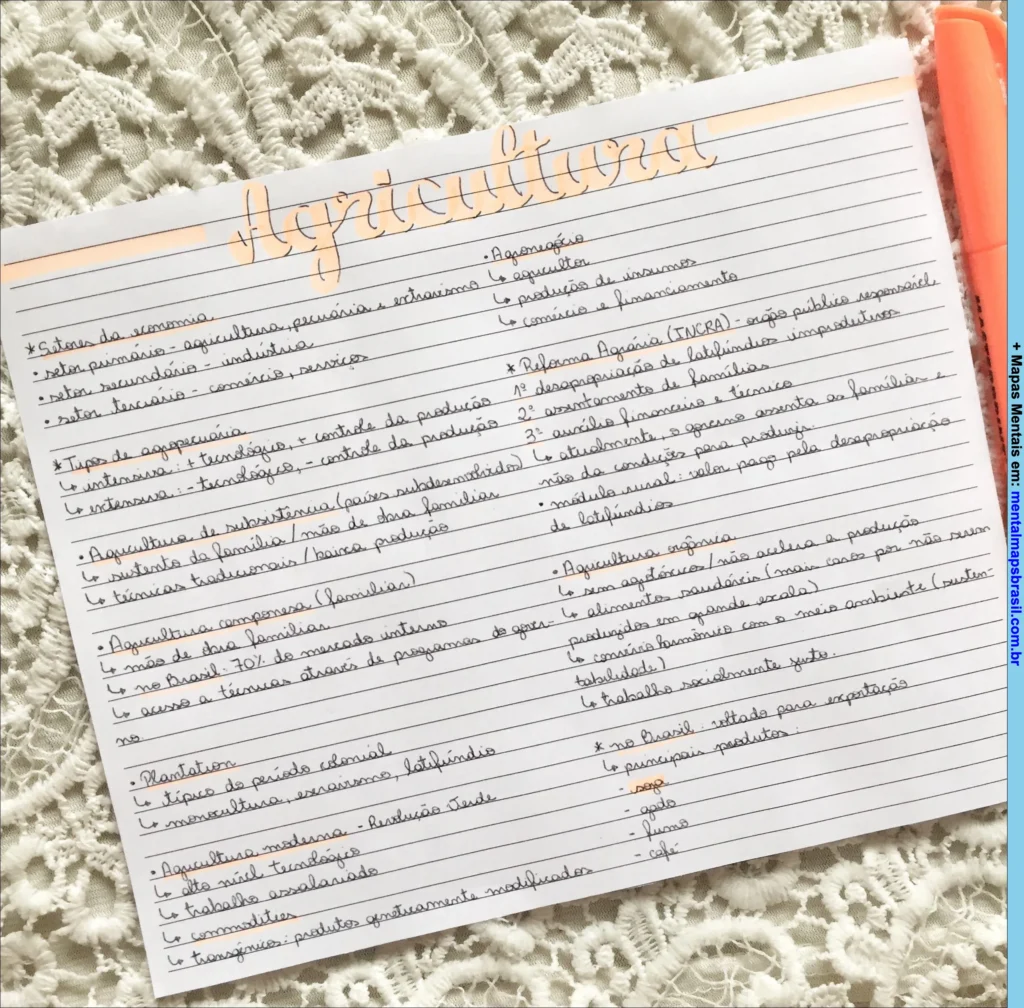 Agricultura
*Setores da economia
• setor primário - agricultura, pecuária e extrativismo
• setor secundário - indústria
• setor terciário - comércio, serviços
*Tipos de agropecuária
↳ intensiva: + tecnológico, + controle da produção
↳ extensiva: - tecnológico, - controle da produção
• Agricultura de subsistência (países subdesenvolvidos)
↳ sustento da família / mão de obra familiar
↳ técnicas tradicionais / baixa produção
• Agricultura camponesa (familiar)
↳ mão de obra familiar
↳ no Brasil: 70% do mercado interno
↳ acesso a técnicas através de programas do gover-
no.
• Plantation
↳ típico do período colonial
↳ monocultura, escravismo, latifúndio
• Agricultura moderna - Revolução Verde
↳ alto nível tecnológico
↳ trabalho assalariado
↳ commodities
↳ transgênicos: produtos geneticamente modificados
• Agronegócio
↳ agricultor
↳ produção de insumos
↳ comércio e financiamento
* Reforma Agrária (INCRA) - orgão público responsável
1º desapropriação de latifúndios improdutivos
2º assentamento de famílias
3º auxílio financeiro e técnico
↳ atualmente, o governo assenta as famílias e
não da condições para produzir.
• módulo rural: valor pago pela desapropriação
de latifúndios
• Agricultura orgânica
↳ sem agrotóxicos / não acelera a produção
↳ alimentos saudáveis (mais caros por não serem
produzidos em grande escala)
↳ convívio harmônico com o meio ambiente (susten-
tabilidade)
↳ trabalho socialmente justo.
* no Brasil: voltado para exportação
↳ principais produtos:
- soja
- gado
- fumo
- café
+ Mapas Mentais em: mentalmapsbrasil.com.br